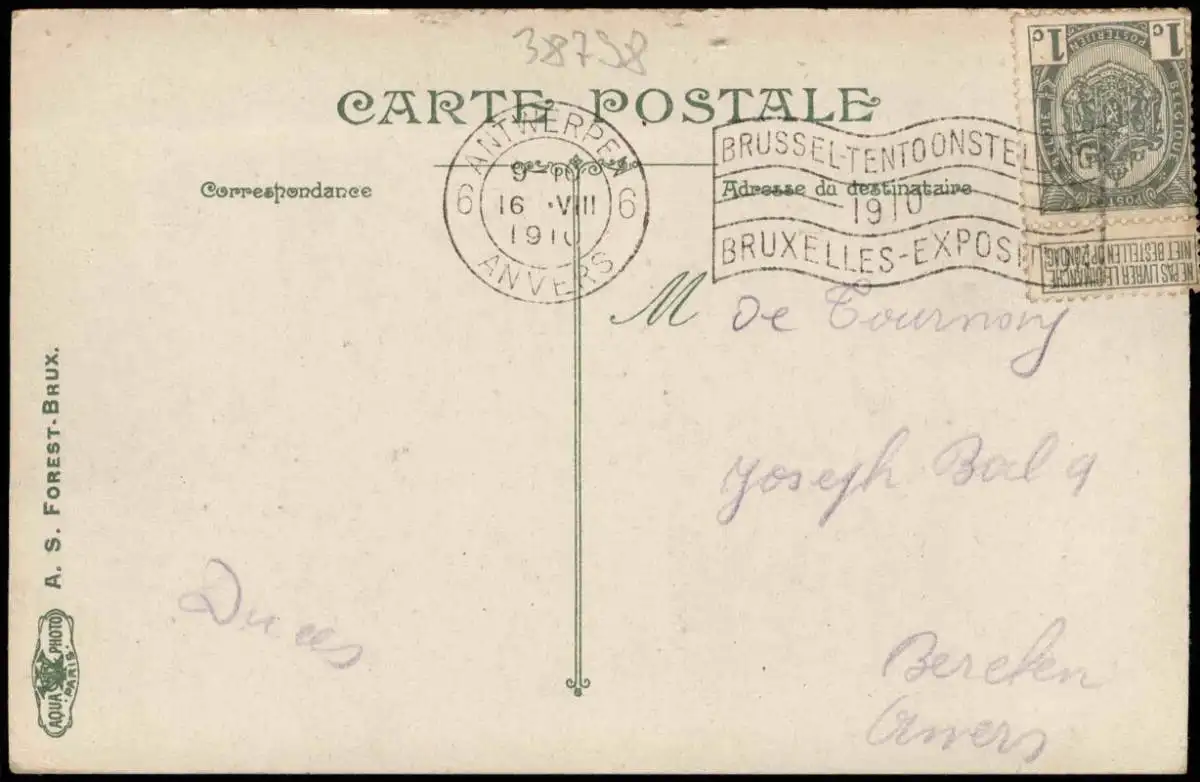 38798
CARTE POSTALE
ANTWERPEN
6 6
16 VIII
1910
ANVERS
BRUSSEL-TENTOONSTEL
1910
BRUXELLES-EXPOSI
1c 1c
POSTERIJEN
BELGIQUE
POSTES
NE PAS LIVRER LE DIMANCHE
NIET BESTELLEN OP ZONDAG
Correspondance
Adresse du destinataire
M De Tournay
Joseph
Berchem
Anvers
A. S. FOREST-BRUX.
AQUA PHOTO
PARIS